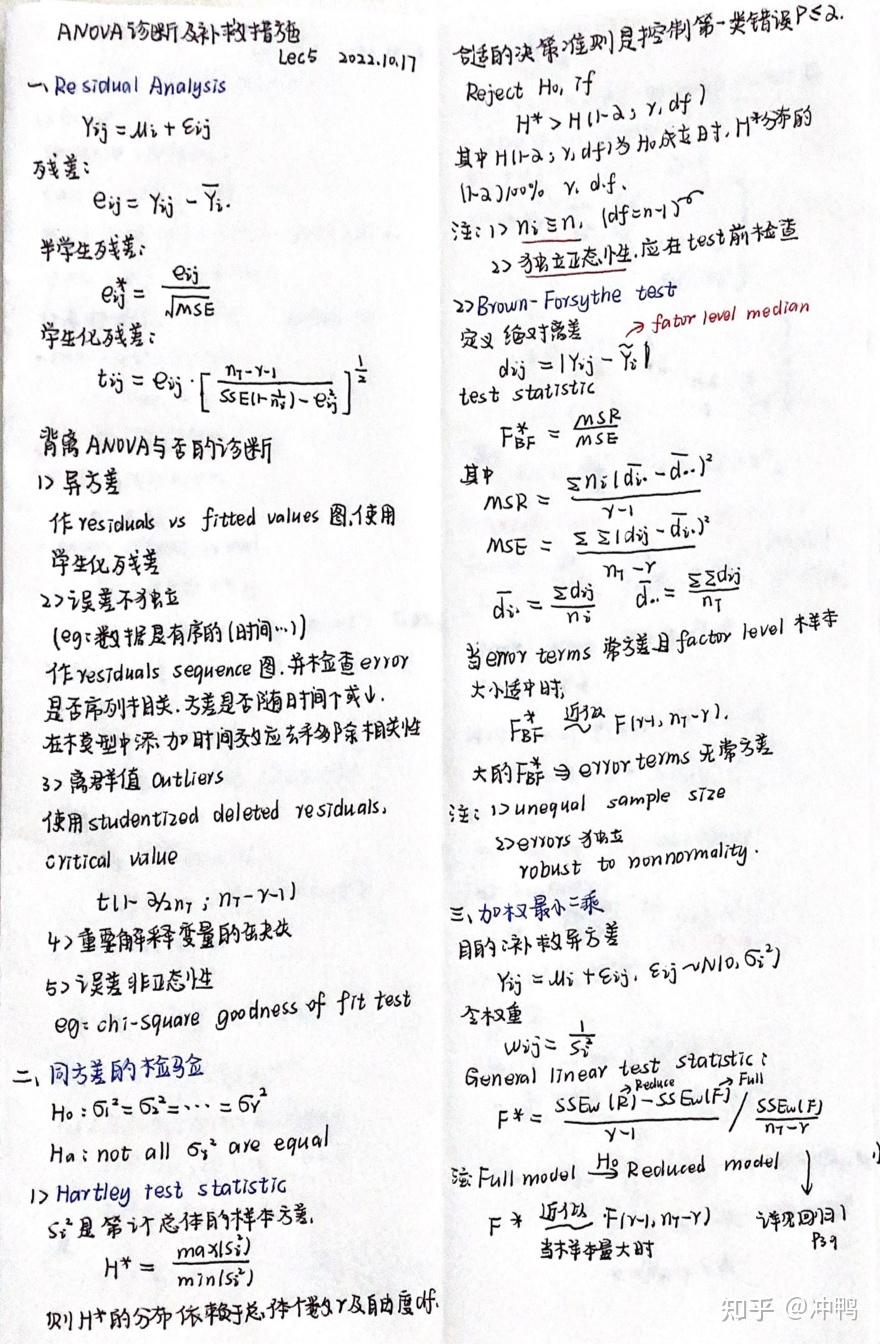 ANOVA诊断及补救措施
Lec5 2022.10.17
一、Residual Analysis
Yij = μi + εij
残差：
eij = Yij - Ȳi.
半学生残差：
eij* = eij / √MSE
学生化残差：
tij = eij · [ (nT-r-1) / (SSE(1-1/ni) - eij²) ]^(1/2)
背离ANOVA与否的诊断
1> 异方差
作residuals vs fitted values 图,使用
学生化残差
2> 误差不独立
(eg: 数据是有序的(时间…))
作residuals sequence 图.并检查error
是否序列相关.方差是否随时间↑或↓.
在模型中添加时间效应去移除相关性
3> 离群值 outliers
使用studentized deleted residuals,
critical value
t(1- α/2nT ; nT-r-1)
4> 重要解释变量的缺失
5> 误差非正态性
eg: chi-square goodness of fit test
二、同方差的检验
H0 : σ1² = σ2² = ··· = σr²
Ha : not all σi² are equal
1> Hartley test statistic
Si²是第i个总体的样本方差,
H* = max(Si²) / min(Si²)
则H*的分布依赖于总体个数r及自由度df.
合适的决策准则是控制第一类错误P≤α.
Reject H0, if
H* > H(1-α ; r, df)
其中H(1-α ; r, df)为H0成立时, H*分布的
(1-α)100% r. d.f.
注: 1> ni ≡ n. (df=n-1)
2> 独立正态性.应在test前检查
2> Brown-Forsythe test
定义 绝对离差
dij = |Yij - Ỹi| → fator level median
test statistic
F*BF = MSR / MSE
其中
MSR = Σni(d̄i. - d̄..)² / (r-1)
MSE = ΣΣ(dij - d̄i.)² / (nT-r)
d̄i. = Σdij / ni d̄.. = ΣΣdij / nT
当error terms 常方差且factor level 样本
大小适中时,
F*BF 近似~ F(r-1, nT-r).
大的F*BF ⇒ error terms 无常方差
注: 1> unequal sample size
2> errors 独立
robust to nonnormality.
三、加权最小二乘
目的:补救异方差
Yij = μi + εij. εij ~ N(0, σi²)
令权重
wij = 1 / Si²
General linear test statistic:
F* = (SSEw(R) - SSEw(F)) / (r-1) / SSEw(F) / (nT-r) → Reduce → Full
注: Full model H0→ Reduced model
F* 近似~ F(r-1, nT-r) 详见回归1
当样本量大时 P39
知乎 @冲鸭